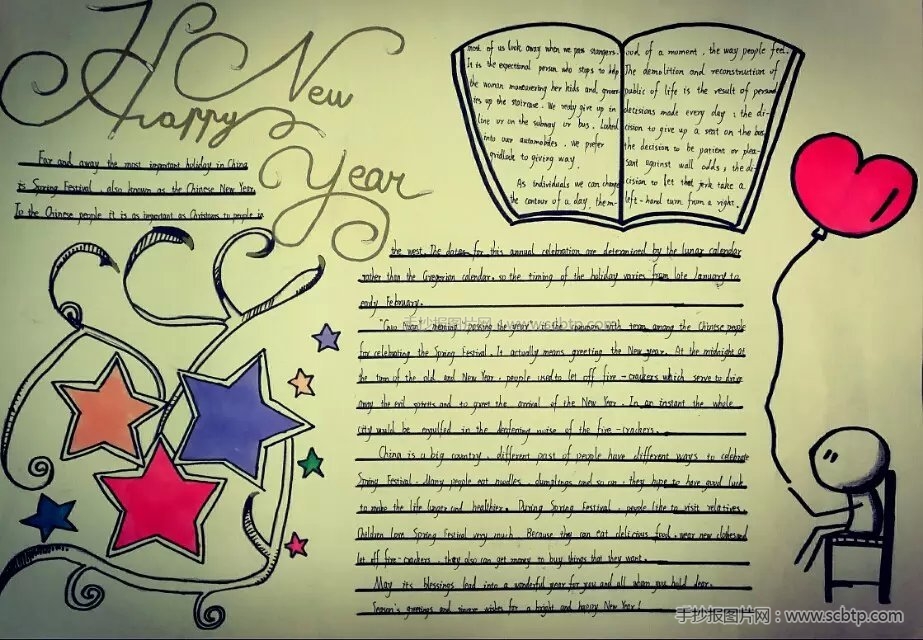 Happy New
Year
Far and away the most important holiday in China
is Spring Festival, also known as the Chinese New Year.
To the Chinese people it is as important as Christmas to people in
the west. The dates for this annual celebration are determined by the lunar calendar
rather than the Gregorian calendar, so the timing of the holiday varies from late January to
early February.
"Guo nian" meaning "passing the year" is the common with term among the Chinese people
for celebrating the Spring Festival. It actually means greeting the New year. At the midnight at
the turn of the old and New Year, people used to let off fire-crackers which serve to drive
away the evil spirits and to greet the arrival of the New Year. In an instant the whole
city would be engulfed in the deafening noise of the fire-crackers.
China is a big country, different past of people have different ways to celebrate
Spring Festival. Many people eat noodles, dumplings and so on, they hope to have good luck
to make the life longer and healthier. During Spring Festival, people like to visit relatives.
Children love Spring Festival very much. Because they can eat delicious food, wear new clothes and
let off fire-crackers, they also can get money to buy things that they want.
May its blessings lead into a wonderful year for you and all whom you hold dear.
Season's greetings and sincere wishes for a bright and happy New Year!
most of us look away when we pass strangers.
It is the exceptional person who stops to help
the woman maneuvering her kids and
up the staircase. We rarely give up in
line or on the subway or bus. Locked
into our automobiles, we prefer
gridlock to giving way.
As individuals we can change
the contour of a day, the m-
ood of a moment, the way people feel.
The demolition and reconstruction of
public of life is the result of personal
decisions made every day: the di-
cision to give up a seat on the bus,
the decision to be patient or plea-
sant against wall odds; the di-
cision to let that jerk take a
left-hand turn from a right.
手抄报图片网：www.scbtp.com
手抄报图片网：www.scbtp.com